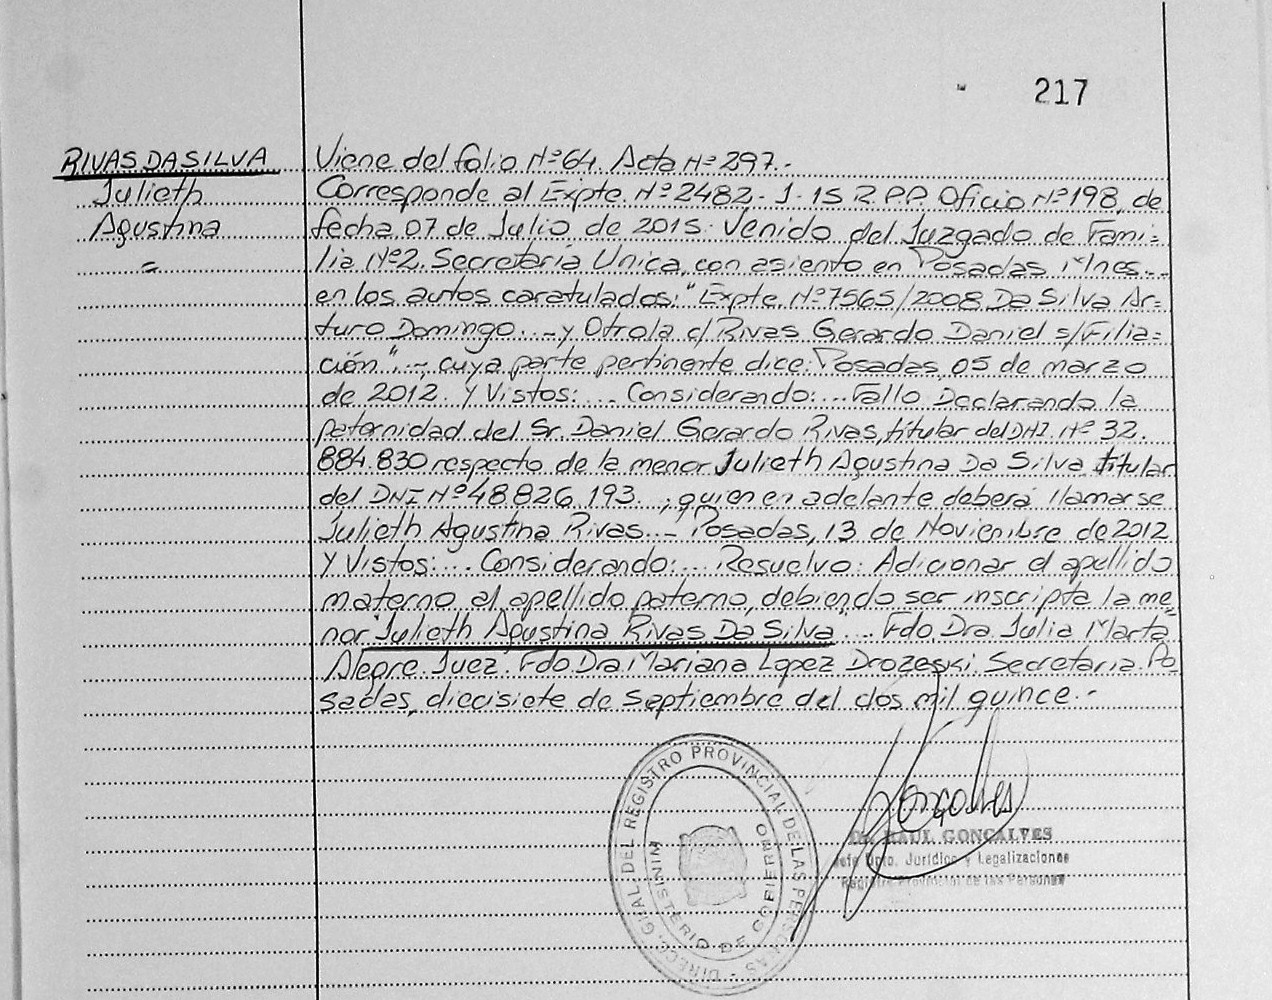 217
RIVAS DA SILVA
Julieth
Agustina
=
Viene del folio Nº 64. Acta Nº 297.-
Corresponde al Expte. Nº 2482 - J - 15 R.P.P. Oficio Nº 198, de
fecha 07 de Julio de 2015. Venido del Juzgado de Fami=
lia Nº2. Secretaría Unica, con asiento en Posadas Mnes...
en los autos caratulados: "Expte. Nº 7565/2008 Da Silva Ar=
turo Domingo...- y Otro/a c/ Rivas Gerardo Daniel s/Filia=
ción"..-, cuya parte pertinente dice: Posadas, 05 de marzo
de 2012. Y Vistos:... Considerando:... Fallo Declarando la
paternidad del Sr. Daniel Gerardo Rivas, titular del DNI. Nº 32.
884.830 respecto de la menor Julieth Agustina Da Silva titular
del DNI Nº 48826.193. ; quien en adelante deberá llamarse
Julieth Agustina Rivas...- Posadas, 13 de Noviembre de 2012
Y Vistos:... Considerando:... Resuelvo: Adicionar el apellido
materno al apellido paterno, debiendo ser inscripta la me=
nor "Julieth Agustina Rivas Da Silva"... Fdo. Dra. Julia Marta
Alegre. Juez. Fdo. Dra. Mariana Lopez Drozeski. Secretaria. Po=
sadas, diecisiete de Septiembre del dos mil quince.-
DIREC. GRAL DEL REGISTRO PROVINCIAL DE LAS PERSONAS -
MINISTERIO DE GOBIERNO
Gonçalves
Dr. RAUL GONCALVES
Jefe Dpto. Jurídico y Legalizaciones
Registro Provincial de las Personas